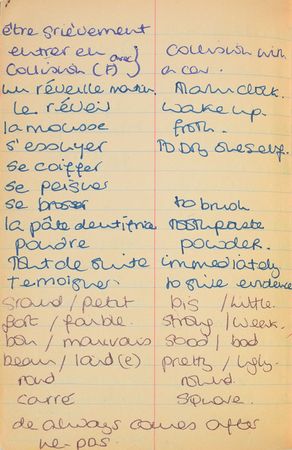 être grièvement
entrer en avec } collision with
collision (F) } a car.
un réveille matin. Alarm clock.
le réveil wake up.
la mousse froth.
s'essuyer to Dry oneself.
se coiffer
se peigner
se brosser to brush
la pâte dentifrice toothpaste
poudre powder.
Tout de suite immediately
temoigner to give evidence
grand / petit big / little.
fort / faible. strong / weak.
bon / mauvais good / bad
beau / laid (e) pretty / ugly.
rond round.
carré square.
de always comes after
ne pas.